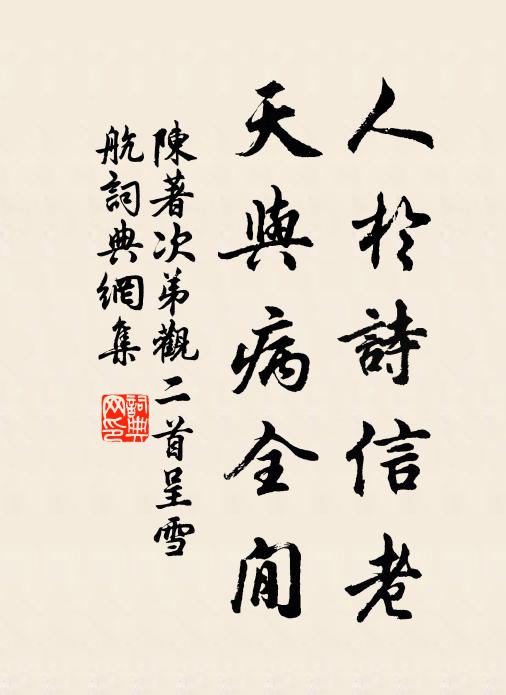 人於詩信老
天與病全閒
陳著次弟觀二首呈雪
航詞典網集
詞典网印